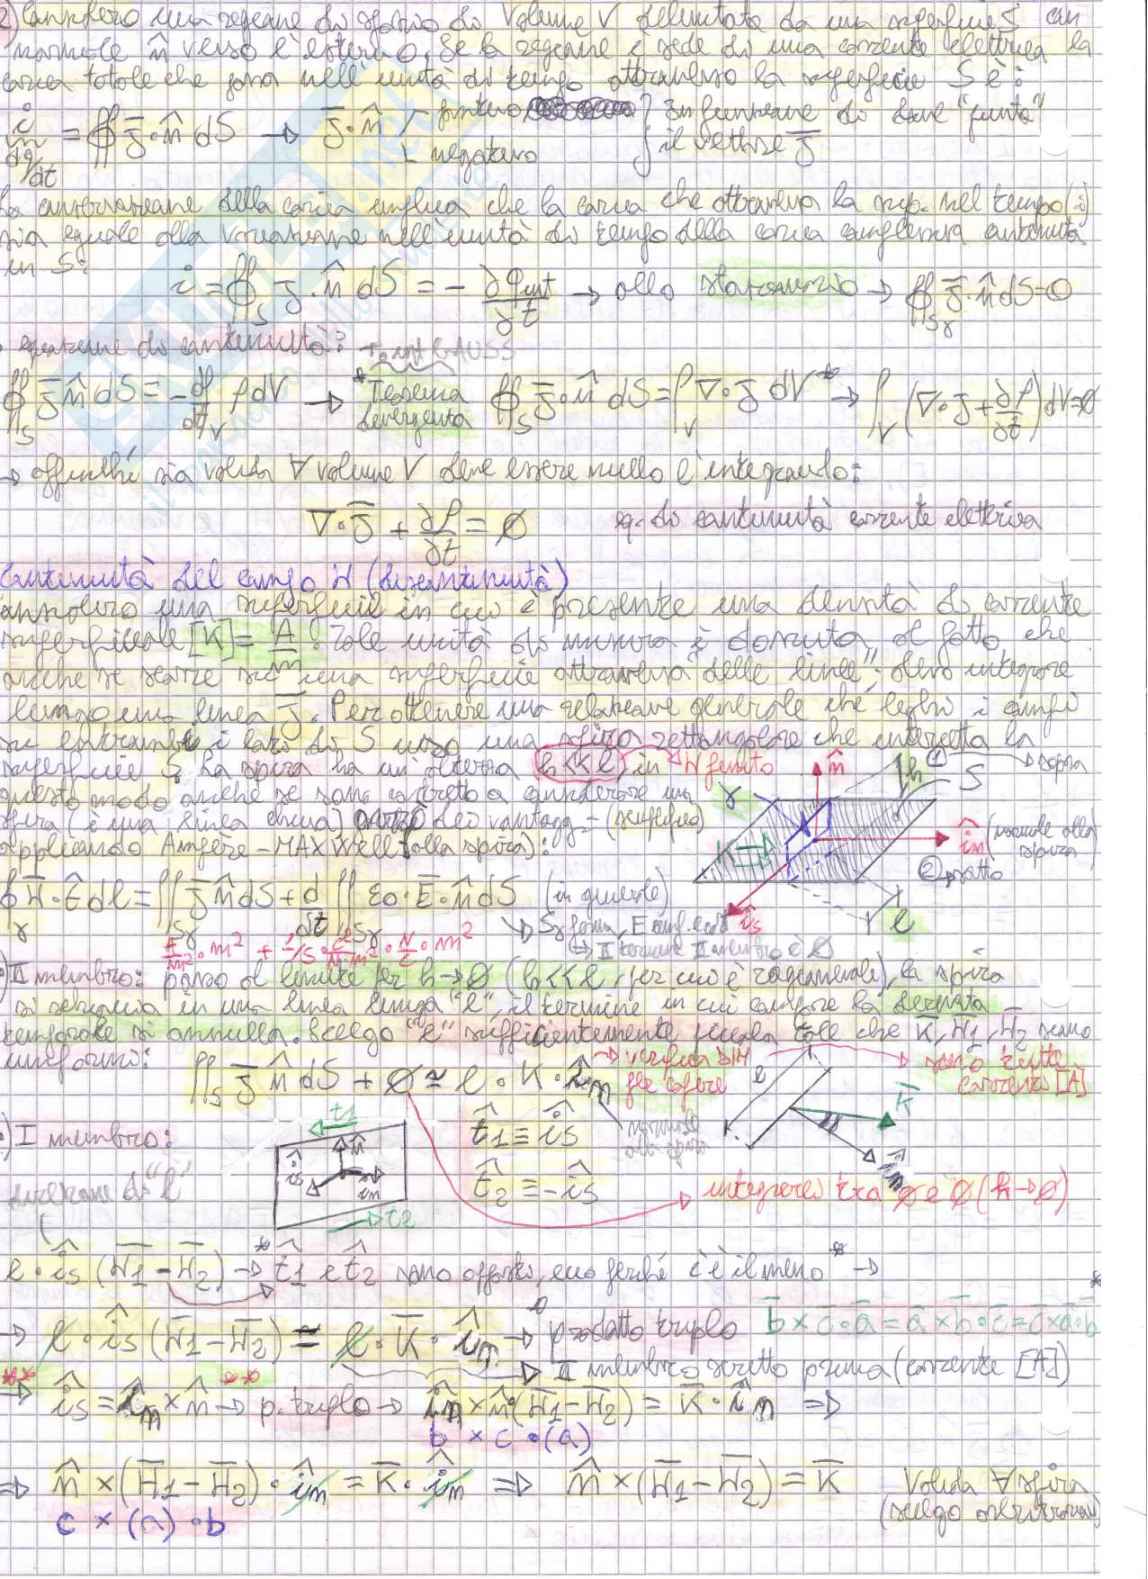 2) Considero una regione di spazio di volume V delimitata da una superficie S con
normale n̂ verso l'esterno. Se la regione è sede di una corrente elettrica la
carica totale che passa nell'unità di tempo attraverso la superficie S è:
i = ∯ J̄·n̂ dS → J̄·n̂ positivo } In funzione di dove "punta"
dq/dt negativo } il vettore J̄
La conservazione della carica implica che la carica che attraversa la sup. nel tempo (i)
sia eguale alla variazione nell'unità di tempo della carica complessiva contenuta
in S:
i = ∯_S J̄·n̂ dS = - ∂Q_int/∂t → allo stazionario → ∯_Sγ J̄·n̂ dS=0
• equazione di continuità:
∯_S J̄·n̂ dS = - d/dt ∫_V ρ dV → * Teorema divergenza ∯_S J̄·n̂ dS = ∫_V ∇·J̄ dV * → ∫_V (∇·J̄ + ∂ρ/∂t) dV=0
→ affinché sia valida ∀ volume V deve essere nullo l'integrando:
∇·J̄ + ∂ρ/∂t = 0 eq. di continuità corrente elettrica
Continuità del campo H (discontinuità)
Considero una superficie in cui è presente una densità di corrente
superficiale [K]= A/m. Tale unità di misura è dovuta al fatto che
anche se scorre su una superficie attraversa "delle linee", devo integrare
lungo una linea J̄. Per ottenere una relazione generale che leghi i campi
su entrambi i lati di S uso una spira rettangolare che interseca la
superficie S. La spira ha un'altezza h<<l, in H finito
questo modo anche se sono costretto a considerare una
spira (è una linea chiusa) ho dei vantaggi (semplifico)
Applicando Ampère-MAXWell (alla spira):
γ n̂ h ① sopra S
K i̅n (normale alla spira)
② sotto
îs l
∮_γ H̄·t̂ dl = ∬_Sγ J̄·n̂ dS + d/dt ∬_Sγ ε0·Ē·n̂ dS (in generale)
A/m²·m² + 1/s·C²/N·m²·N/C·m²
→ II termine II membro è 0
•) II membro: passo al limite per h→0 (h<<l, per cui è ragionevole), la spira
si schiaccia in una linea lunga "l", il termine in cui compare la derivata
temporale si annulla. Scelgo "l" sufficientemente piccola tale che K̄, H̄1, H̄2 siano
uniformi:
∬_S J̄·n̂ dS + 0 ≃ l·K̄·îm
verifica
normale alla spira
l
K̄
•) I membro:
t̂1 n̂ îs îm t̂2
t̂1 ≡ îs
t̂2 ≡ -îs
integrerei tra 0 e 0 (h→0)
l·îs (H̄1-H̄2) → * t̂1 e t̂2 sono opposti, ecco perché c'è il meno * →
→ l·îs (H̄1-H̄2) = l·K̄·îm → prodotto triplo b̄×c̄·ā = ā×b̄·c̄ = c̄×ā·b̄
→ II membro scritto prima (corrente [A])
** îs = îm×n̂ ** → p. triplo → îm×n̂·(H̄1-H̄2) = K̄·îm ⇒
b × c · (a)
⇒ n̂×(H̄1-H̄2)·îm = K̄·îm ⇒ n̂×(H̄1-H̄2) = K̄ Valida ∀ spira
c × (a) · b